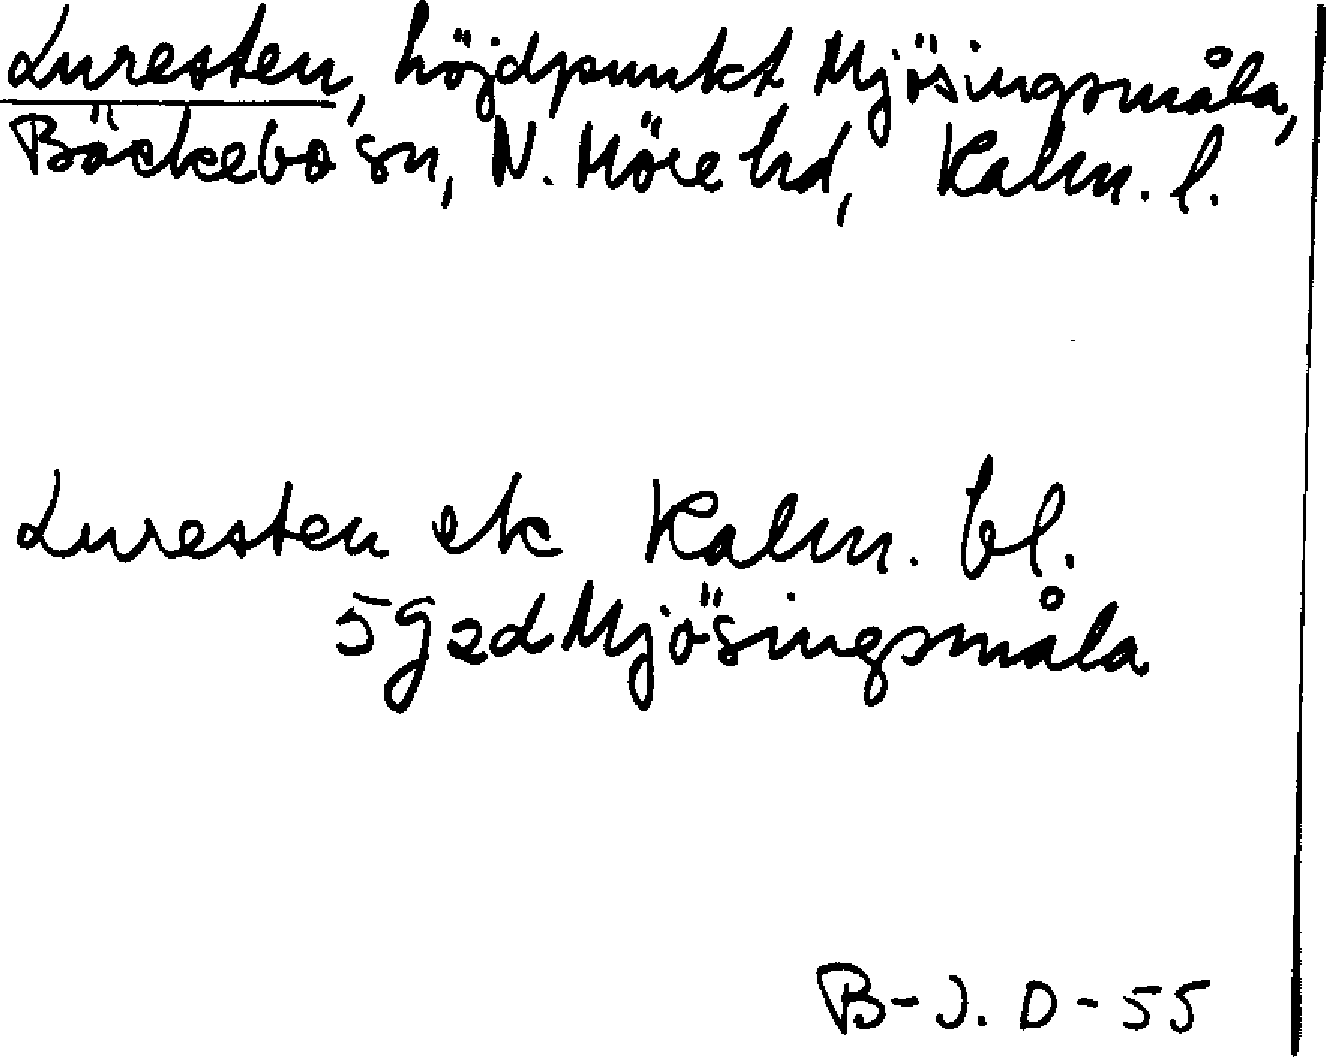 Luresten, höjdpunkt Mjösingsmåla,
Bäckebo sn, N. Möre hd, Kalm. l.
Luresten ek Kalm. bl.
5g2d Mjösingsmåla
B-J. D-55